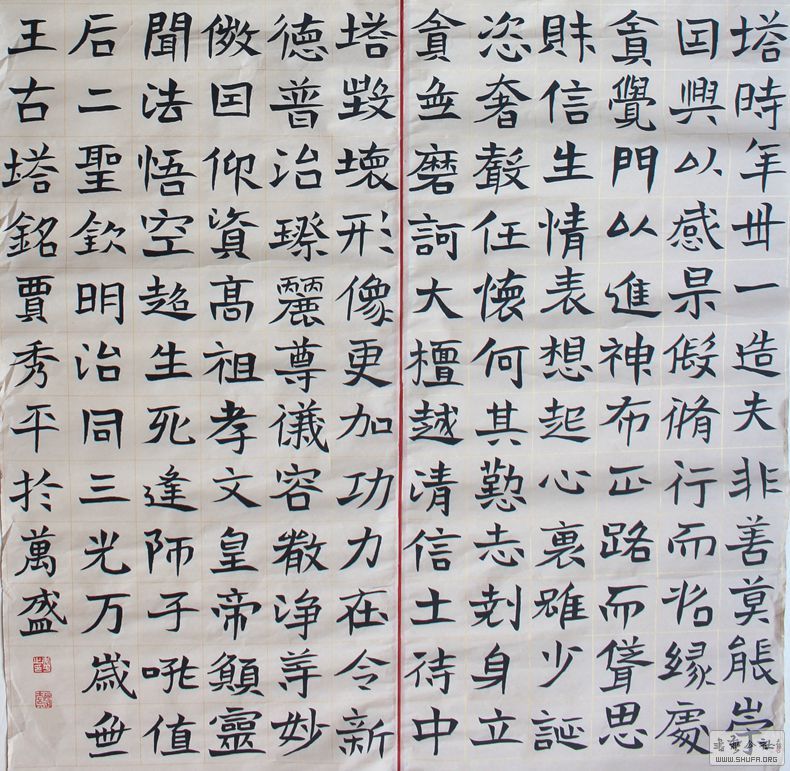 塔時年丗一造夫非善莫能崇
囙興以感果假脩行而緣處
貪覺門以進神布正路而聳思
財信生情表想起心裏雖少誕
恣奢任懷何其懃志剋身立
貪無磨訶大檀越清信士待中
塔毀壞形像更加功力在令新
德普治琛麗尊儀容淨羊妙
囙仰資高祖孝文皇帝願靈
聞法悟空超生死逢師子吼值
后二聖欽明治同三光万歲無
王古塔銘賈秀平於萬盛
WWW.SHUFA.ORG